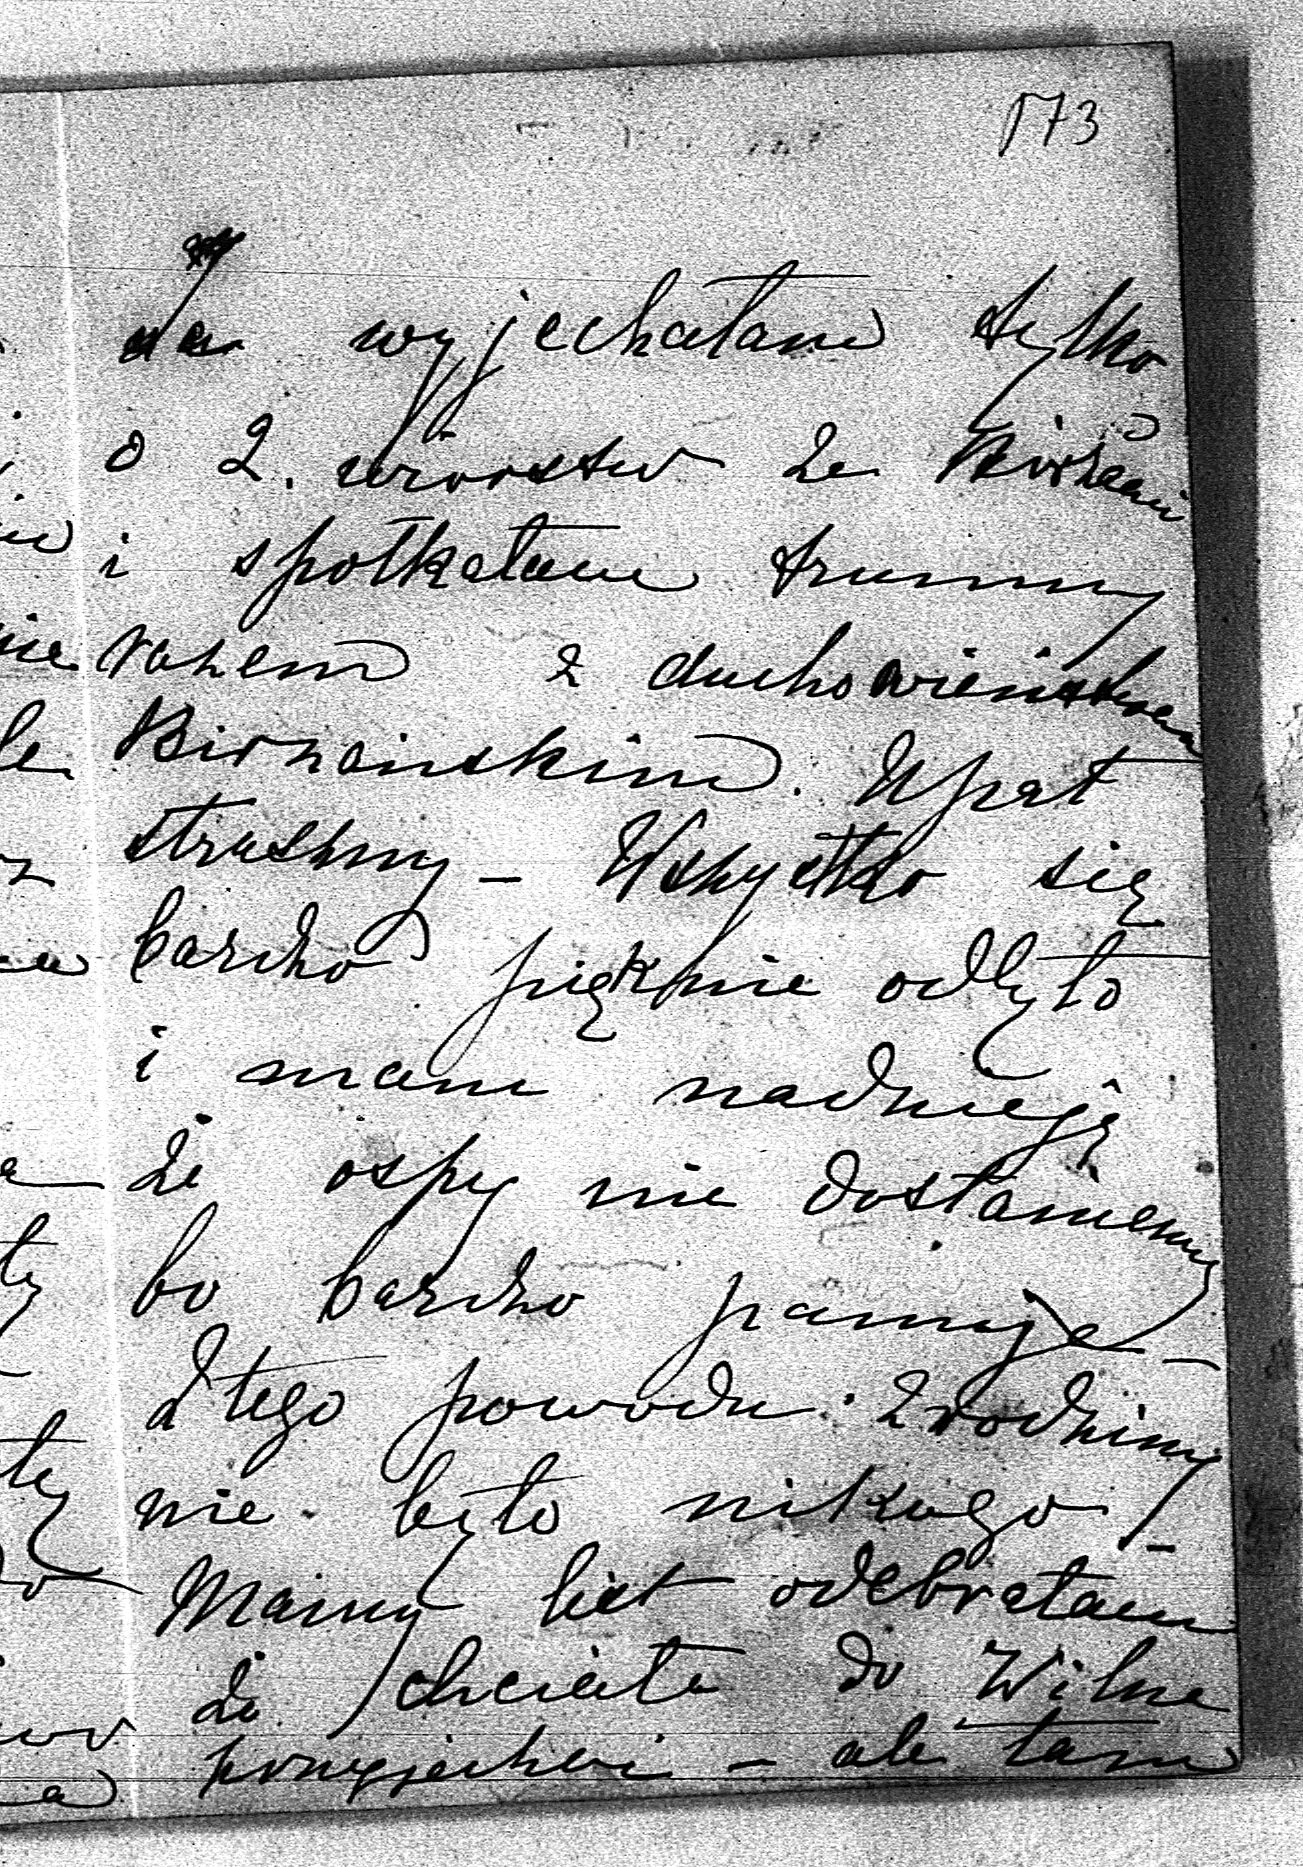 173
ja wyjechałam tylko
o 2. wiorstw za Birżami
i spotkałam trumny
razem z duchowieństwem
Birżańskim. Upał
straszny – Wszystko się
bardzo pięknie odbyło
i mam nadzieję
że ospy nie dostaniemy
bo bardzo panuje –
Z tego powodu z rodziny
nie było nikogo! –
Mamy list odebrałam
że chciała do Wilna
przyjechać – ale tam